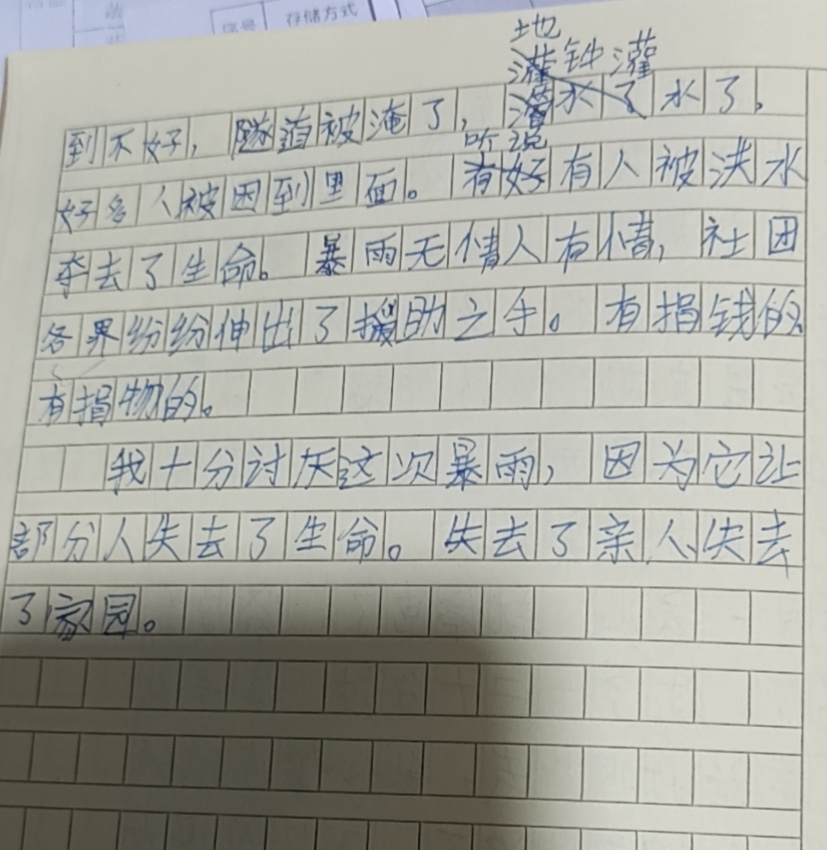 序号 存储方式
地钟灌
到不好，隧道被淹了，水了。
听说
好多人被困到里面。有人被洪水
夺去了生命。暴雨无情人有情，社团
各界纷纷伸出了援助之手。有捐钱的
有捐物的。
我十分讨厌这次暴雨，因为它让
部分人失去了生命。失去了亲人、失去
了家园。